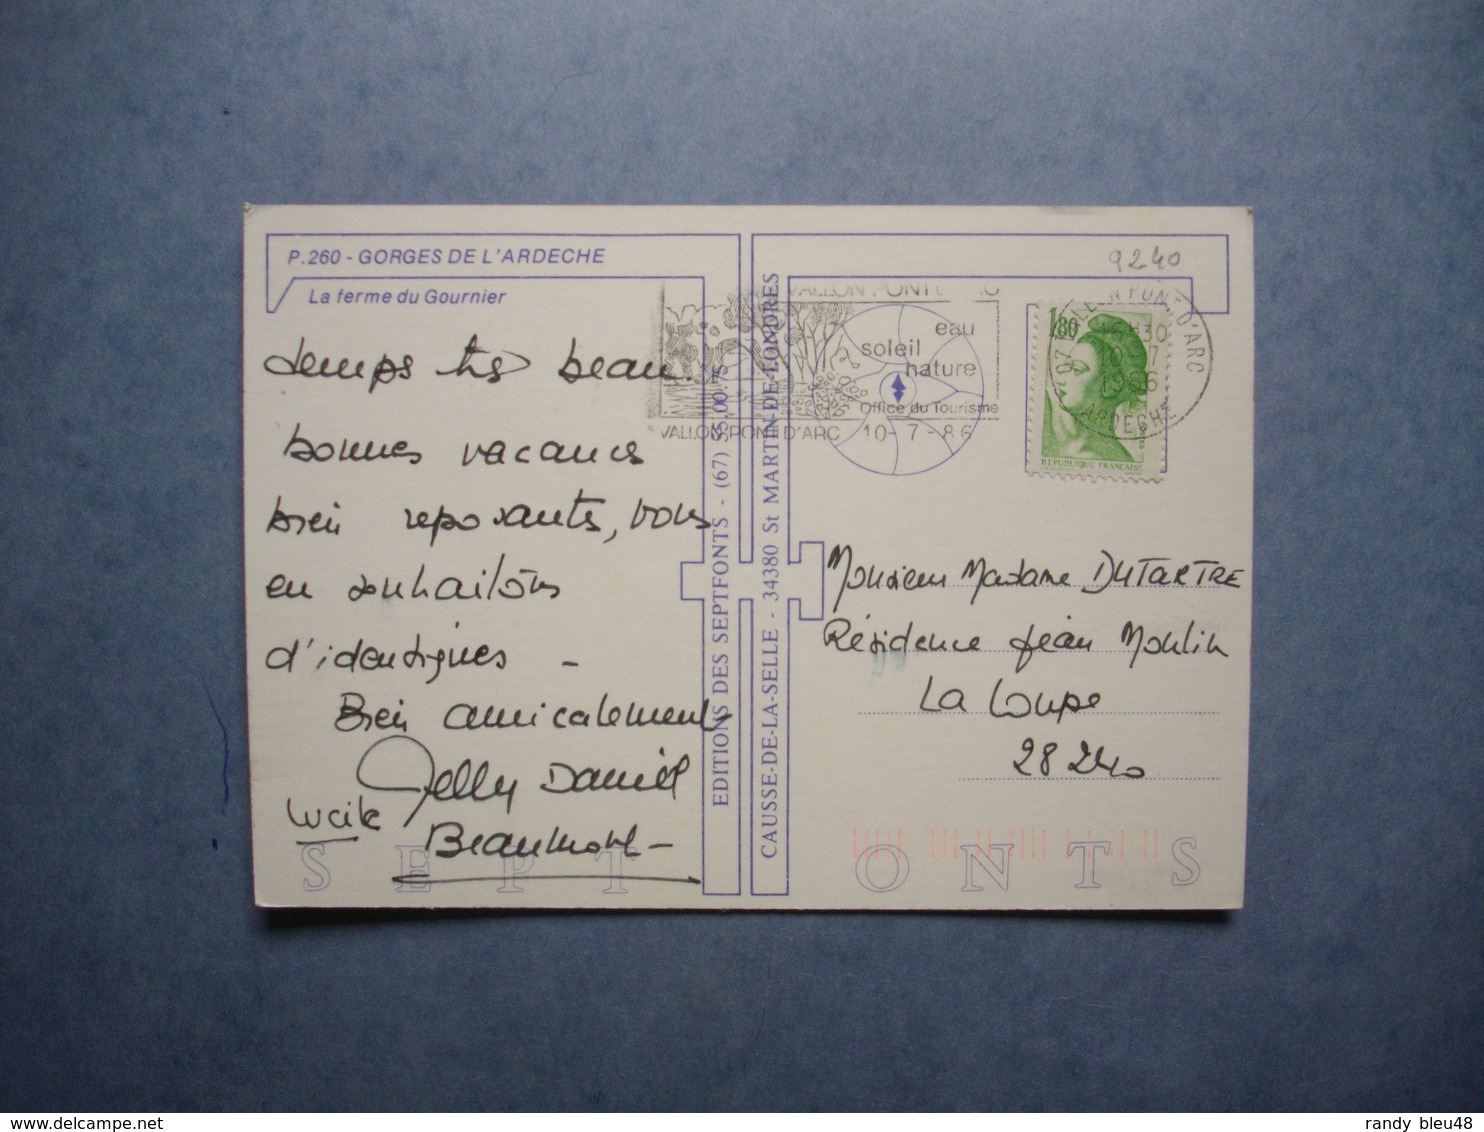 P.260 - GORGES DE L'ARDECHE
La ferme du Gournier
temps très beau
bonnes vacances
bien reposantes, vous
en souhaitons
d'identiques -
Bien amicalement
Nelly Daniel
Lucile
Beaumont -
EDITIONS DES SEPTFONTS - (67) 55.00.75
CAUSSE-DE-LA-SELLE - 34380 St MARTIN-DE-LONDRES
9240
VALLON PONT
eau
soleil
nature
Office du Tourisme
VALLON PONT D'ARC 10-7-86
1,80
REPUBLIQUE FRANCAISE
07 VALLON PONT D'ARC
16H30
10-7
1986
ARDECHE
Monsieur Madame DUTARTRE
Résidence Jean Moulin
La Loupe
28240
SEPT ONTS
delcampe.net
randy bleu48